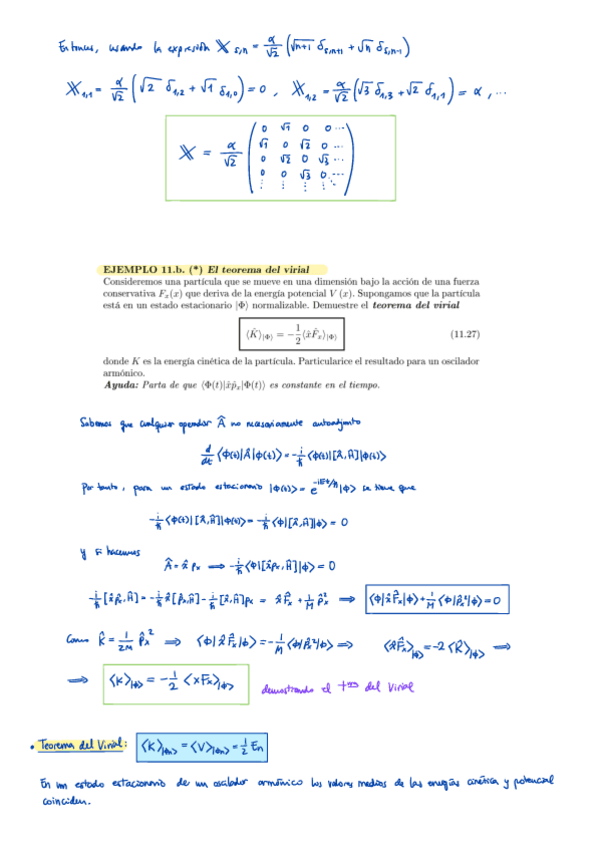 Entonces, usando la expresión 𝕏 s,n = α/√2 (√n+1 δs,n+1 + √n δs,n-1)
𝕏1,1 = α/√2 (√2 δ1,2 + √1 δ1,0) = 0 , 𝕏1,2 = α/√2 (√3 δ1,3 + √2 δ1,1) = α , ...
𝕏 = α/√2 ( 0 √1 0 0 ...
√1 0 √2 0 ...
0 √2 0 √3 ...
0 0 √3 0 ...
⋮ ⋮ ⋮ ⋮ ⋱ )
EJEMPLO 11.b. (*) El teorema del virial
Consideremos una partícula que se mueve en una dimensión bajo la acción de una fuerza
conservativa Fx(x) que deriva de la energía potencial V (x). Supongamos que la partícula
está en un estado estacionario |Φ⟩ normalizable. Demuestre el teorema del virial
⟨K̂⟩|Φ⟩ = −1/2 ⟨x̂F̂x⟩|Φ⟩ (11.27)
donde K es la energía cinética de la partícula. Particularice el resultado para un oscilador
armónico.
Ayuda: Parta de que ⟨Φ(t)|x̂p̂x|Φ(t)⟩ es constante en el tiempo.
Sabemos que cualquier operador Â no necesariamente autoadjunto
d/dt ⟨ϕ(t)|Â|ϕ(t)⟩ = -i/ħ ⟨ϕ(t)|[Â,Ĥ]|ϕ(t)⟩
Por tanto, para un estado estacionario |ϕ(t)⟩ = e^-iEt/ħ |ϕ⟩ se tiene que
-i/ħ ⟨ϕ(t)|[Â,Ĥ]|ϕ(t)⟩ = -i/ħ ⟨ϕ|[Â,Ĥ]|ϕ⟩ = 0
y si hacemos
Â = x̂ px ⟹ -i/ħ ⟨ϕ|[x̂px,Ĥ]|ϕ⟩ = 0
-i/ħ [x̂px,Ĥ] = -i/ħ x̂[p̂x,Ĥ] - i/ħ [x̂,Ĥ]px = x̂F̂x + 1/M p̂x² ⟹ ⟨ϕ|x̂F̂x|ϕ⟩ + 1/M ⟨ϕ|p̂x²|ϕ⟩ = 0
Como K̂ = 1/2M p̂x² ⟹ ⟨ϕ|x̂F̂x|ϕ⟩ = -1/M ⟨ϕ|p̂x²|ϕ⟩ ⟹ ⟨x̂F̂x⟩|ϕ⟩ = -2 ⟨K̂⟩|ϕ⟩ ⟹
⟹ ⟨K⟩|ϕ⟩ = -1/2 ⟨xFx⟩|ϕ⟩ demostrando el tma del Virial
• Teorema del Virial: ⟨K⟩|ϕn⟩ = ⟨V⟩|ϕn⟩ = 1/2 En
En un estado estacionario de un oscilador armónico los valores medios de las energías cinética y potencial
coinciden.